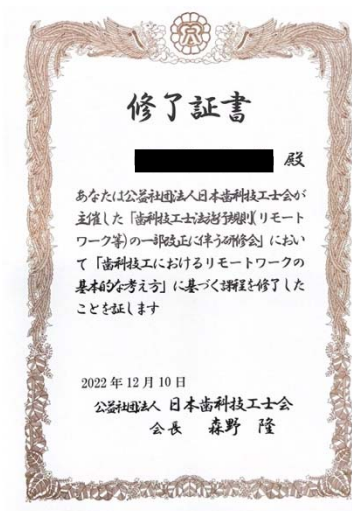 修了証書
殿
あなたは公益社団法人日本歯科技工士会が
主催した「歯科技工士法施行規則(リモート
ワーク等)の一部改正に伴う研修会」におい
て「歯科技工におけるリモートワークの
基本的な考え方」に基づく課程を修了した
ことを証します
2022年12月10日
公益社団法人 日本歯科技工士会
会長 森野 隆